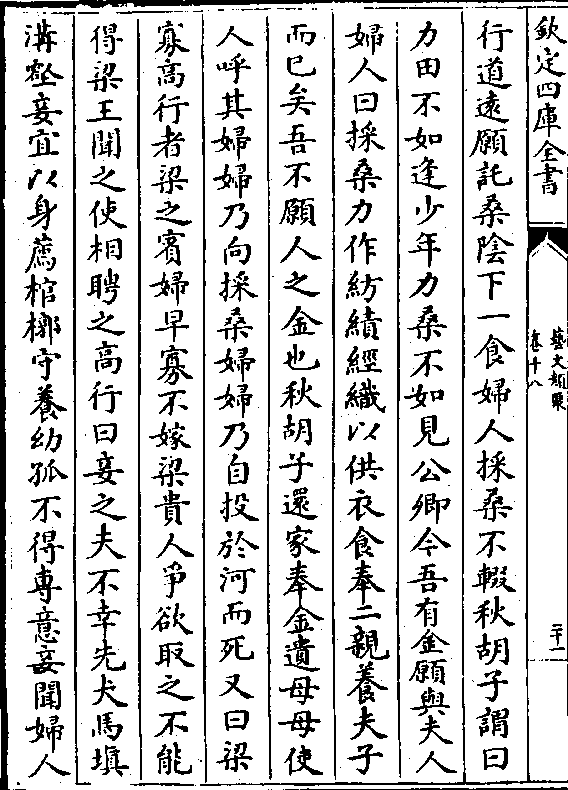 欽定四庫全書
藝文類聚
卷十八
二十一
行道逺願託桑陰下一食婦人採桑不輟秋胡子謂曰
力田不如逢少年力桑不如見公卿今吾有金願與夫人
婦人曰採桑力作紡績經織以供衣食奉二親養夫子
而已矣吾不願人之金也秋胡子還家奉金遺母母使
人呼其婦婦乃向採桑婦婦乃自投於河而死又曰梁
寡高行者梁之寡婦早寡不嫁梁貴人爭欲取之不能
得梁王聞之使相聘之高行曰妾之夫不幸先犬馬填
溝壑妾宜以身薦棺槨守養幼孤不得專意妾聞婦人